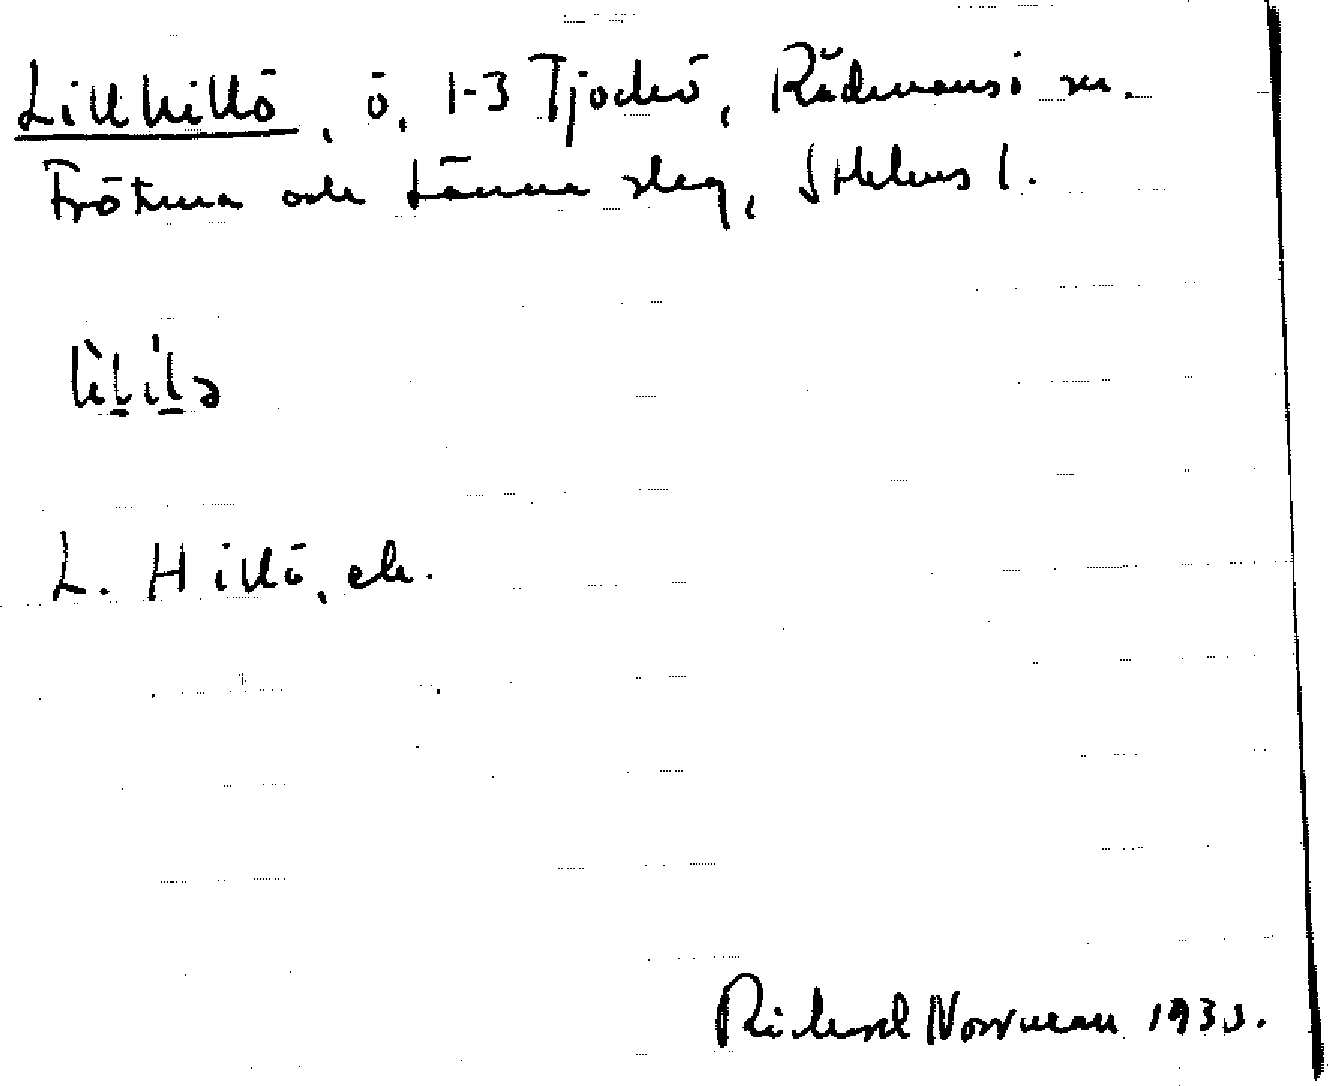 Lillhillö, ö, 1-3 Tjockö, Rådmansö sn.
Frötuna och Länna slag, Sthlms l.
L. Hillö, ek.
Richard Norrman 1933.